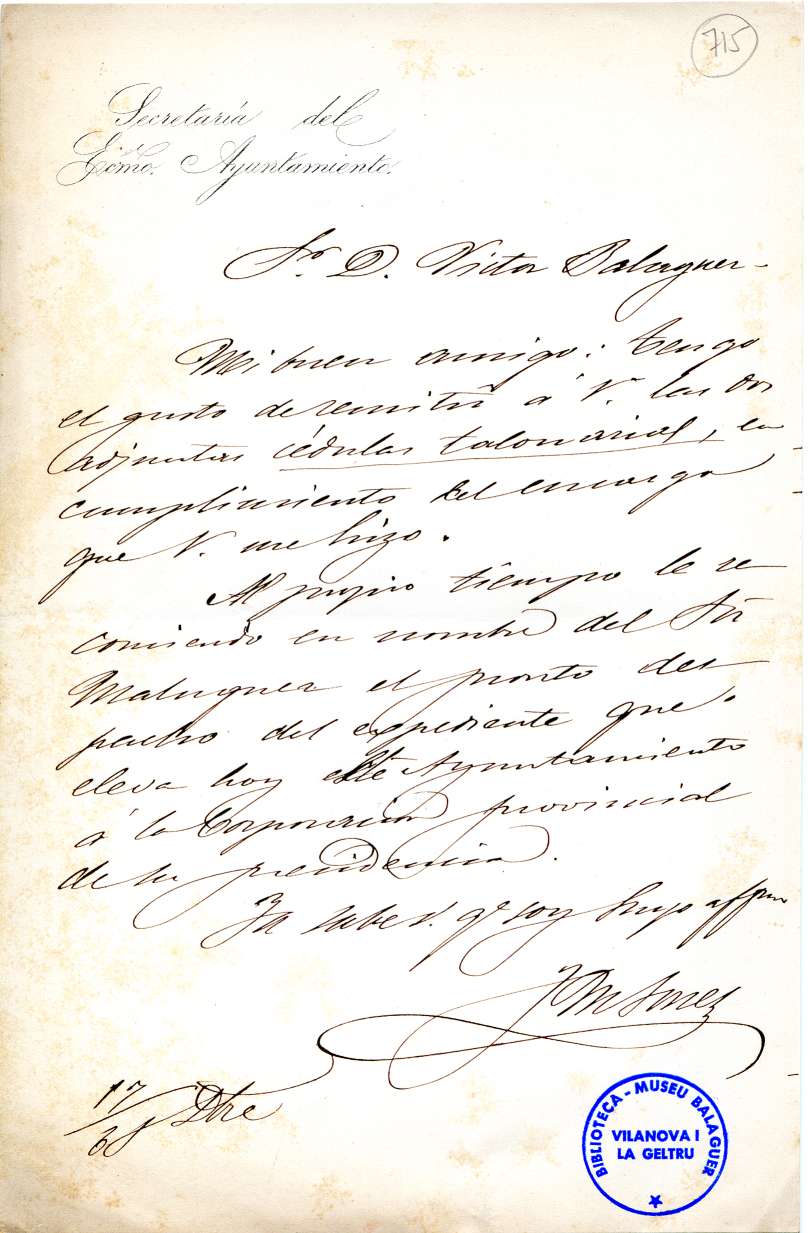 715
Secretaría del
Ecmo. Ayuntamiento.
Sr. D. Victor Balaguer-
Mi buen amigo: tengo
el gusto de remitir á V. las dos
adjuntas cédulas talonarias, en
cumplimiento del encargo
que V. me hizo.
Al propio tiempo le re
comiendo en nombre del Sr
Maluquer el pronto des
pacho del expediente que
eleva hoy este Ayuntamiento
á la Corporacion provincial
de su presidencia.
Ya sabe V. qe soy suyo affmo
17 Dbre
68
BIBLIOTECA - MUSEU BALAGUER
VILANOVA I
LA GELTRU